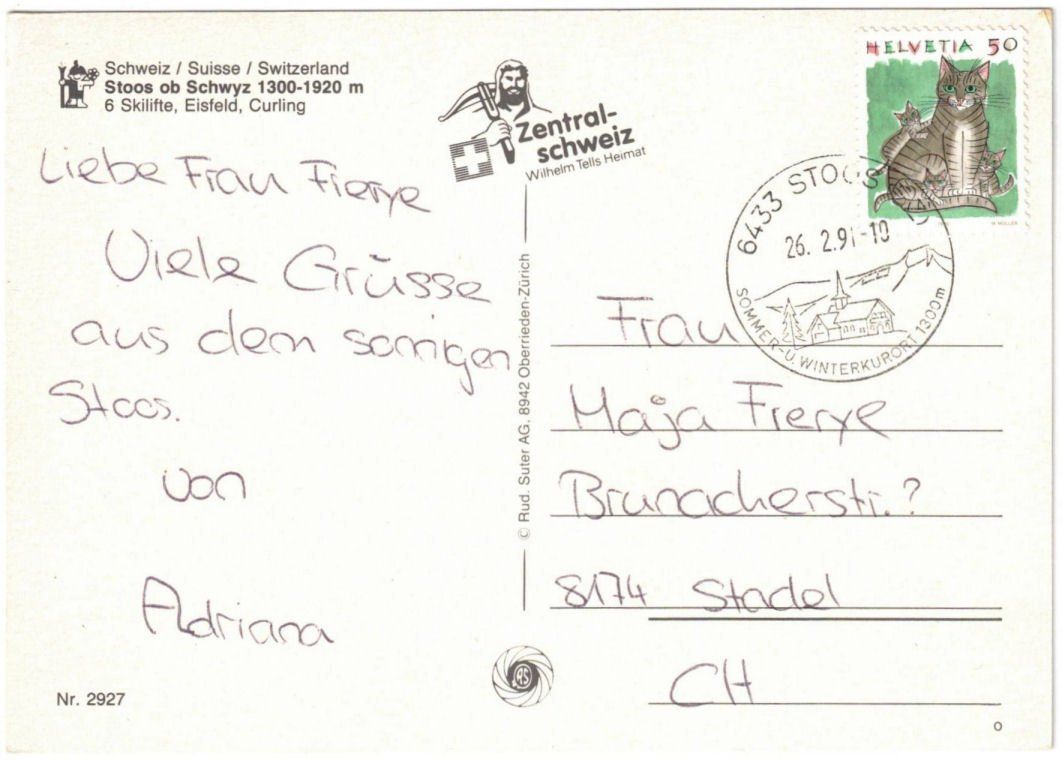 Schweiz / Suisse / Switzerland
Stoos ob Schwyz 1300-1920 m
6 Skilifte, Eisfeld, Curling
Zentral-
schweiz
Wilhelm Tells Heimat
HELVETIA 50
6433 STOOS
26. 2.91-10
SOMMER-U. WINTERKURORT 1300m
Liebe Frau Frerye
Viele Grüsse
aus dem sonnigen
Stoos.
von
Adriana
© Rud. Suter AG. 8942 Oberrieden-Zürich
Frau
Maja Frerye
Brunacherstr.?
8174 Stadel
CH
Nr. 2927